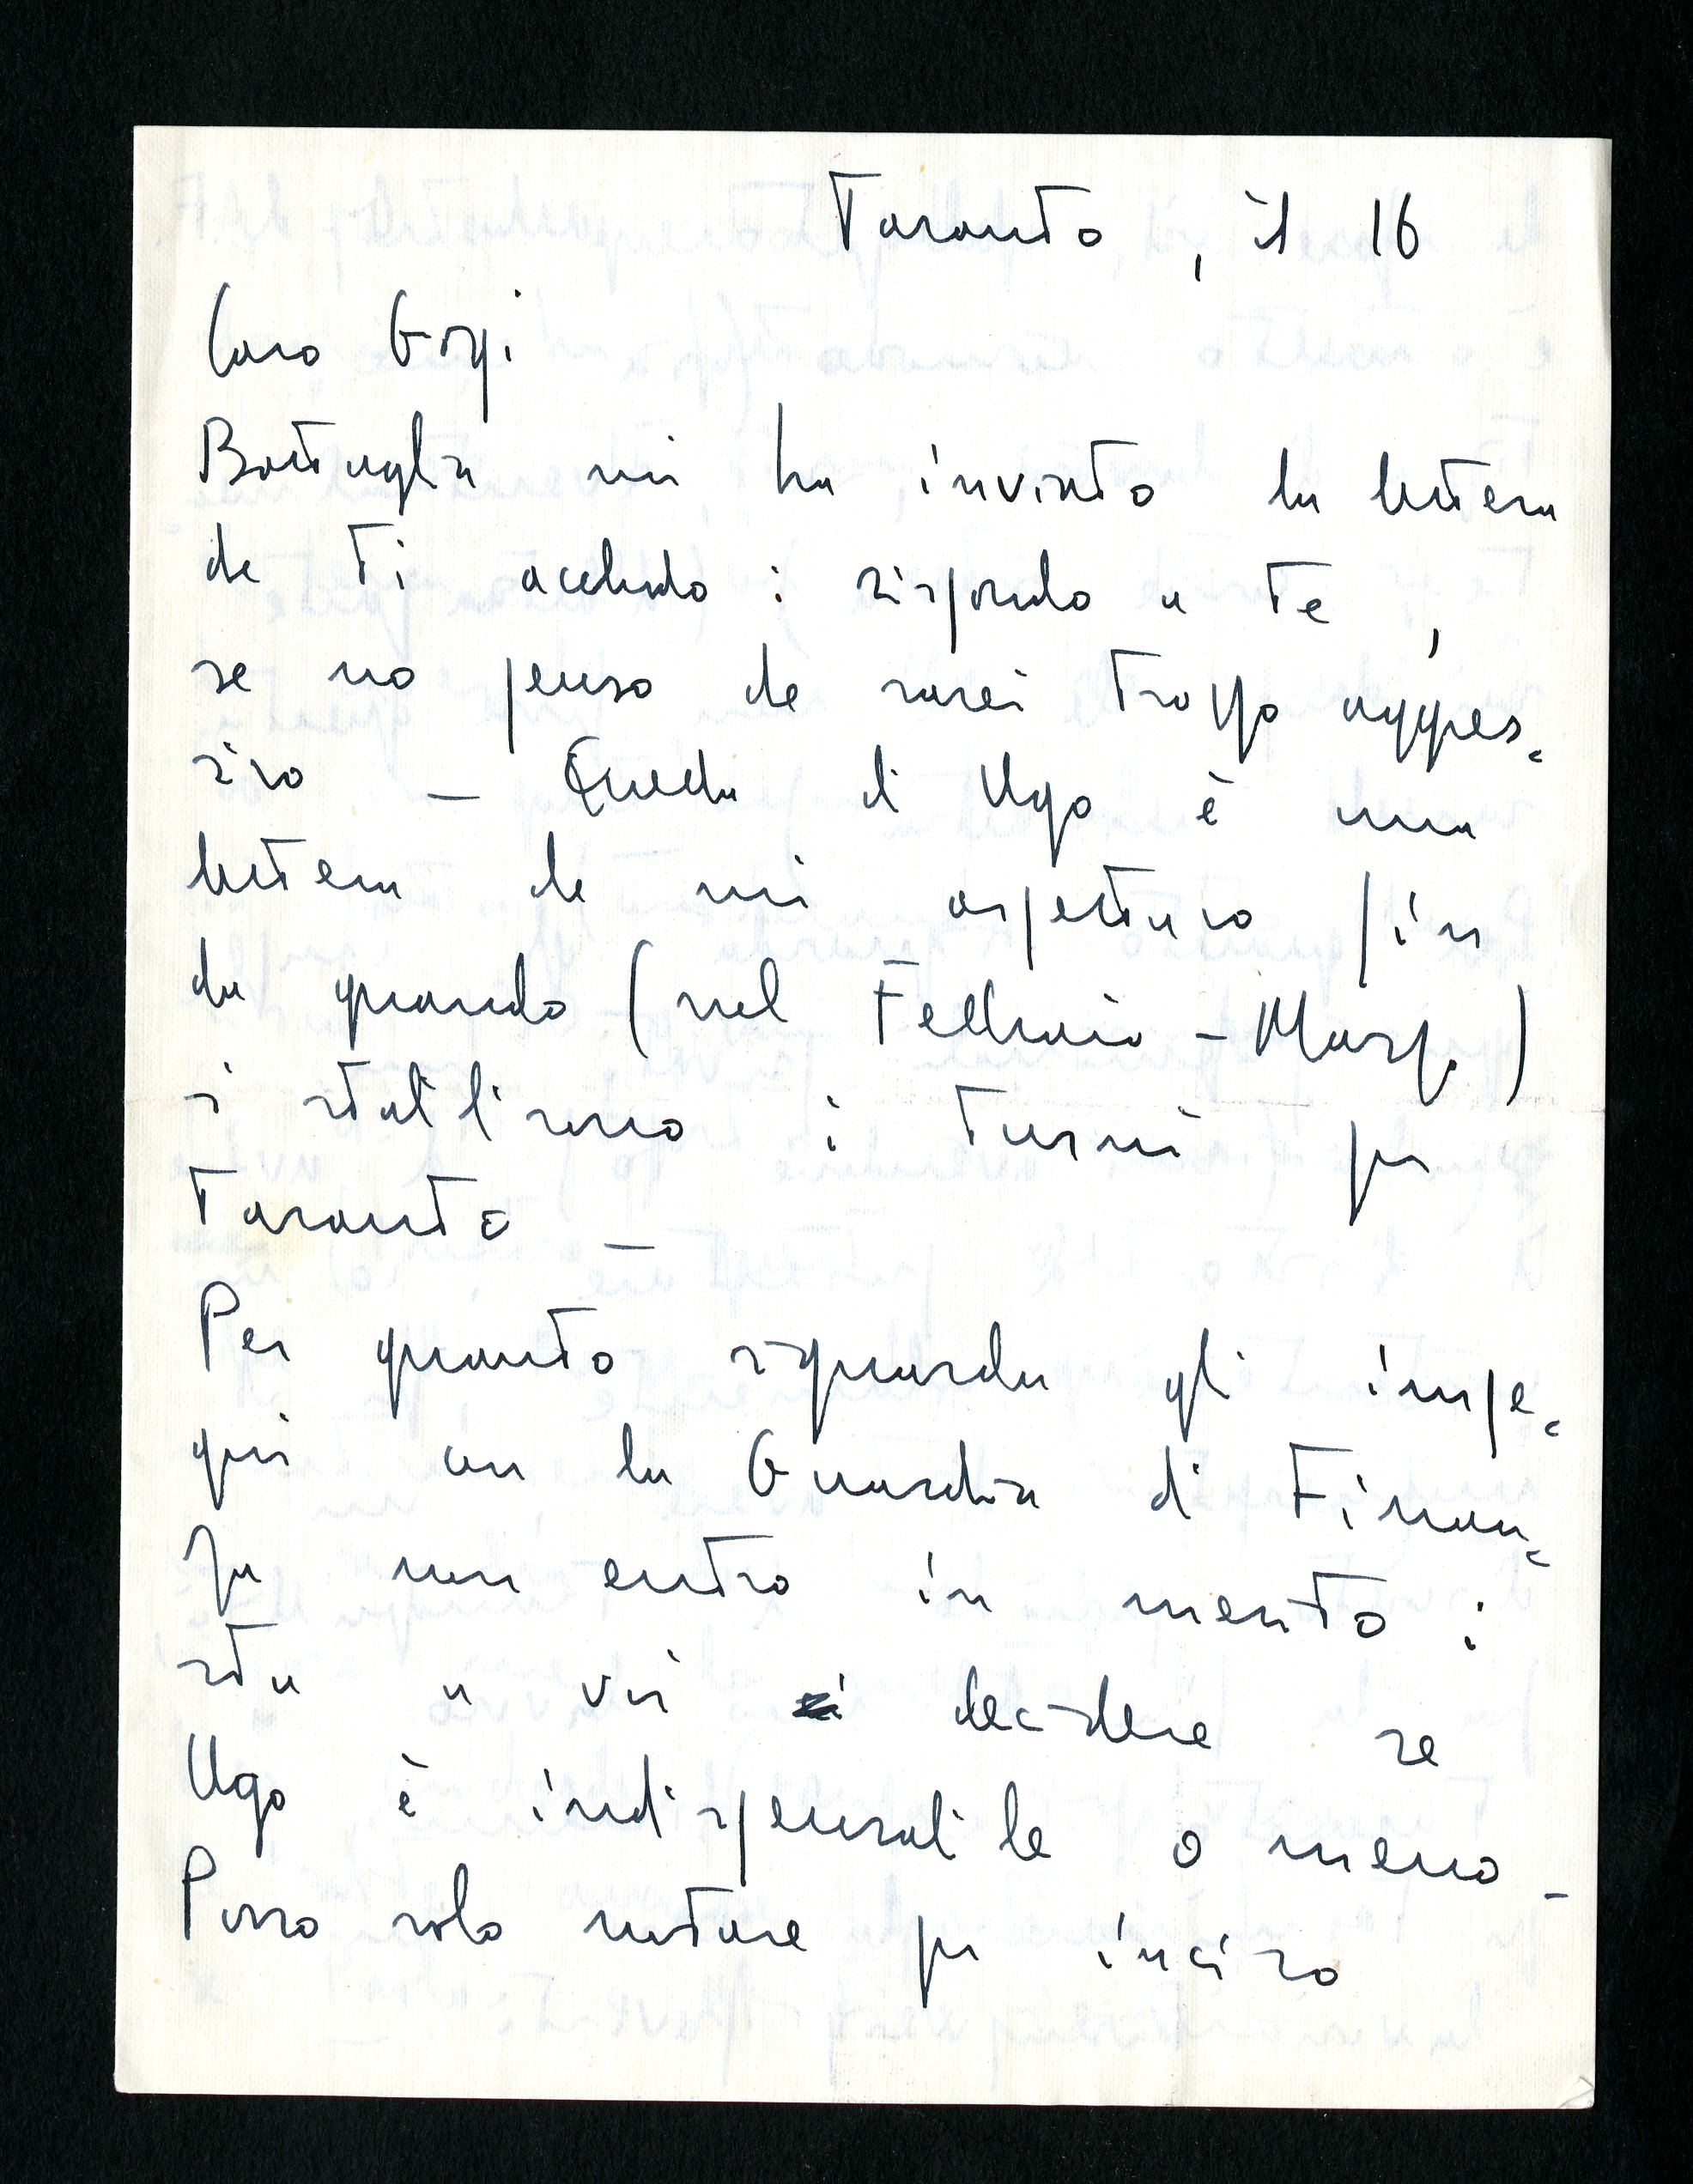 Taranto, il 16
Caro Gozi
Battaglia mi ha inviato la lettera
che ti accludo: rispondo a te,
se no penso che sarei troppo aggres=
sivo — Quella di Ugo è una
lettera che mi aspettavo fin
da quando (nel Febbraio - Marzo)
si stabilirono i turni per
Taranto —
Per quanto riguarda gli impe=
gni con la Guardia di Finan=
za non entro in merito:
sta a voi decidere se
Ugo è indispensabile o meno —
Posso solo notare per inciso